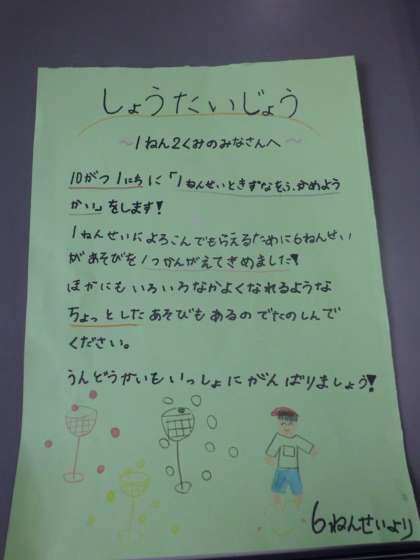 しょうたいじょう
～1ねん2くみのみなさんへ～
10がつ1にちに「1ねんせいときずなをふかめよう
かい」をします！
1ねんせいによろこんでもらえるために6ねんせい
があそびを1つかんがえてきめました！
ほかにもいろいろなかよくなれるような
ちょっとしたあそびもあるのでたのしんで
ください。
うんどうかいもいっしょにがんばりましょう！
6ねんせいより